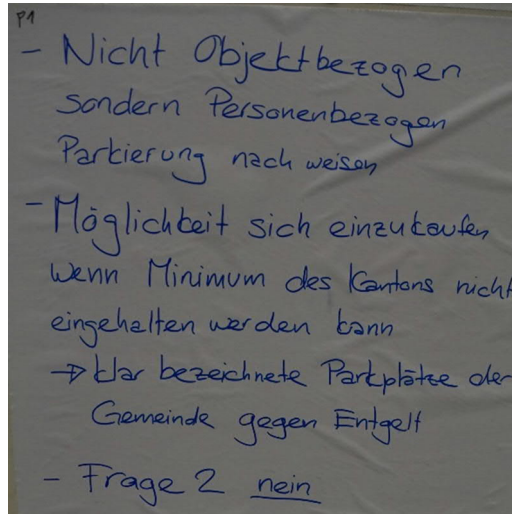 P1
- Nicht Objektbezogen
sondern Personenbezogen
Parkierung nach weisen
- Möglichkeit sich einzukaufen
wenn Minimum des Kantons nicht
eingehalten werden kann
→ klar bezeichnete Parkplätze der
Gemeinde gegen Entgelt
- Frage 2 nein